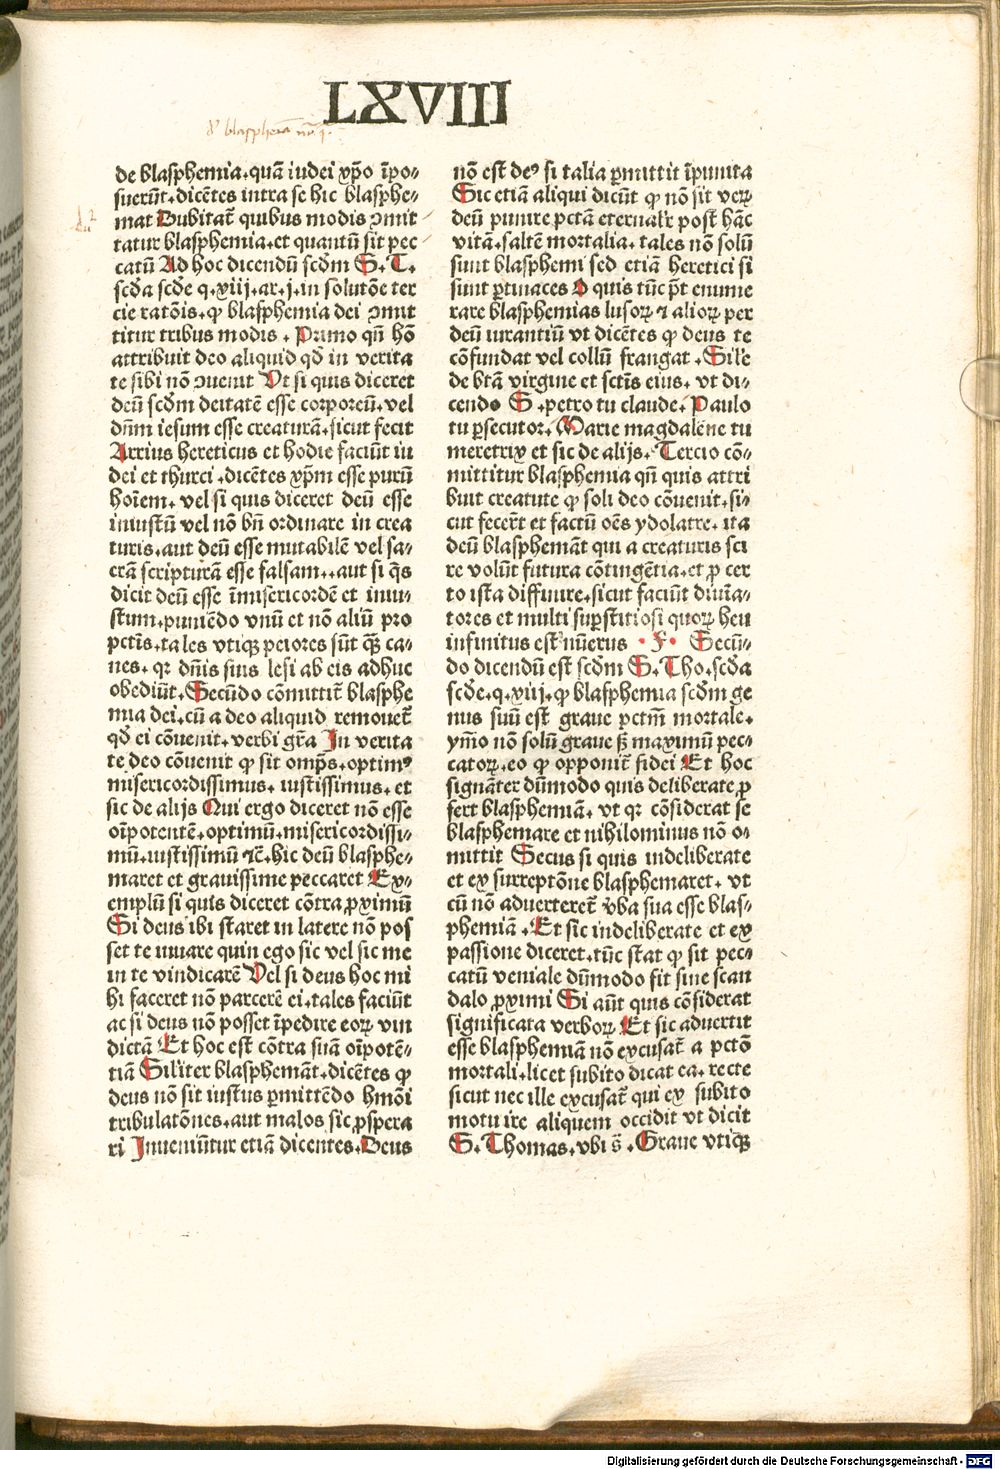 LXVIII
de blasphemia.quā iudei xp̄o īpo⸗
suerūt.dicētes intra se hic blasphe⸗
mat Dubitat̄ quibus modis ꝯmit
tatur blasphemia.et quantū sit pec
catū Ad hoc dicendū scḋm S.T.
scḋa scḋe q.xiij.ar.j.in solutōe ter
cie ratōis.ꝙ blasfemia dei ꝯmit
titur tribus modis . Primo qn̄ hō
attribuit deo aliquid qḋ in verita
te sibi nō ꝯuenit Vt si quis diceret
deū scḋm deitatē esse corporeū.vel
dn̄m iesum esse creaturā.sicut fecit
Arrius hereticus et hodie faciūt iu
dei et thurci .dicētes xp̄m esse purū
hoīem. vel si quis diceret deū esse
iniustū vel nō bn̄ ordinare in crea
turis.aut deū esse mutabilē vel sa⸗
crā scripturā esse falsam..aut si q̄s
dicit deū esse īmisericordē et iniu⸗
stum.puniēdo vnū et nō aliū pro
pctīs.tales vtiqꝫ peiores sūt qꝫ̄ ca⸗
nes. qꝛ dn̄is suis lesi ab eis adhuc
obediūt.Secūdo cōmittit̄ blasphe
mia dei.cū a deo aliquid remouet̄
qḋ ei cōuenit.verbi gr̄a In verita
te deo cōuenit ꝙ sit omp̄s.optimꝰ
misericordissimus. iustissimus. et
sic de alijs Qui ergo diceret nō esse
oīpotentē.optimū.misericordissi⸗
mū.iustissimū ⁊c̄.hic deū blasphe⸗
maret et grauissime peccaret Ex⸗
emplū si quis diceret cōtra ꝓximū
Si deus ibi staret in latere nō pos
set te iuuare quin ego sic vel sic me
in te vindicarē Vel si deus hoc mi
hi faceret nō parcerē ei.tales faciūt
ac si deus nō posset īpedire eoꝝ vin
dictā Et hoc est cōtra suā oīpotē⸗
tiā Silʼiter blasphemāt.dicētes ꝙ
deus nō sit iustus ꝑmittēdo hmōi
tribulatōnes.aut malos sic ꝓspera
ri Inueniūtur etiā dicentes.Deus
nō est deꝰ si talia ꝑmittit īpunita
Sic etiā aliqui dicūt ꝙ nō sit veꝝ
deū punire pctā eternalʼr post hāc
vitā.saltē mortalia. tales nō solū
sunt blasphemi sed etiā heretici si
sunt ꝑtinaces O quis tūc p̄t enume
rare blasphemias lusoꝝ ⁊ alioꝝ per
deū iurantiū vt dicētes ꝙ deus te
cōfundat vel collū frangat .Silʼe
de btā virgine et sctīs eius. vt di⸗
cendo S .petro tu claude. Paulo
tu ꝑsecutor. Marie magdalene tu
meretrix et sic de alijs. Tercio cō⸗
mittitur blasphemia qn̄ quis attri
buit creature ꝙ soli deo cōuenit.si⸗
cut fecer̄t et factū oēs ydolatre. ita
deū blasphemāt qui a creaturis sci
re volūt futura cōtingētia.et ꝓ cer
to ista diffinire.sicut faciūt diuīa⸗
tores et multi suꝑstitiosi quoꝝ heu
infinitus est nūerus .F. Secū⸗
do dicendū est scḋm S.Tho.scḋa
scḋe.q.xiij.ꝙ blasphemia scḋm ge
nus suū est graue pctm̄ mortale.
ymō nō solū graue sꝫ maximū pec⸗
catoꝝ.eo ꝙ opponit̄ fidei Et hoc
signāter dūmodo quis deliberate ꝓ
fert blasphemiā. vt qꝛ cōsiderat se
blasphemare et nihilominus nō o⸗
mittit Secus si quis indeliberate
et ex surreptōne blasphemaret. vt
cū nō aduerteret̄ v̄ba sua esse blas⸗
phemiā .Et sic indeliberate et ex
passione diceret.tūc stat ꝙ sit pec⸗
catū veniale dūmodo fit sine scan
dalo ꝓximi Si aūt quis cōsiderat
significata verboꝝ Et sic aduertit
esse blasphemiā nō excusat̄ a pctō
mortali.licet subito dicat ea. recte
sicut nec ille excusat̄ qui ex subito
motu ire aliquem occidit vt dicit
S.Thomas.vbi s̄ .Graue vtiqꝫ
Digitalisierung gefördert durch die Deutsche Forschungsgemeinschaft - DFG